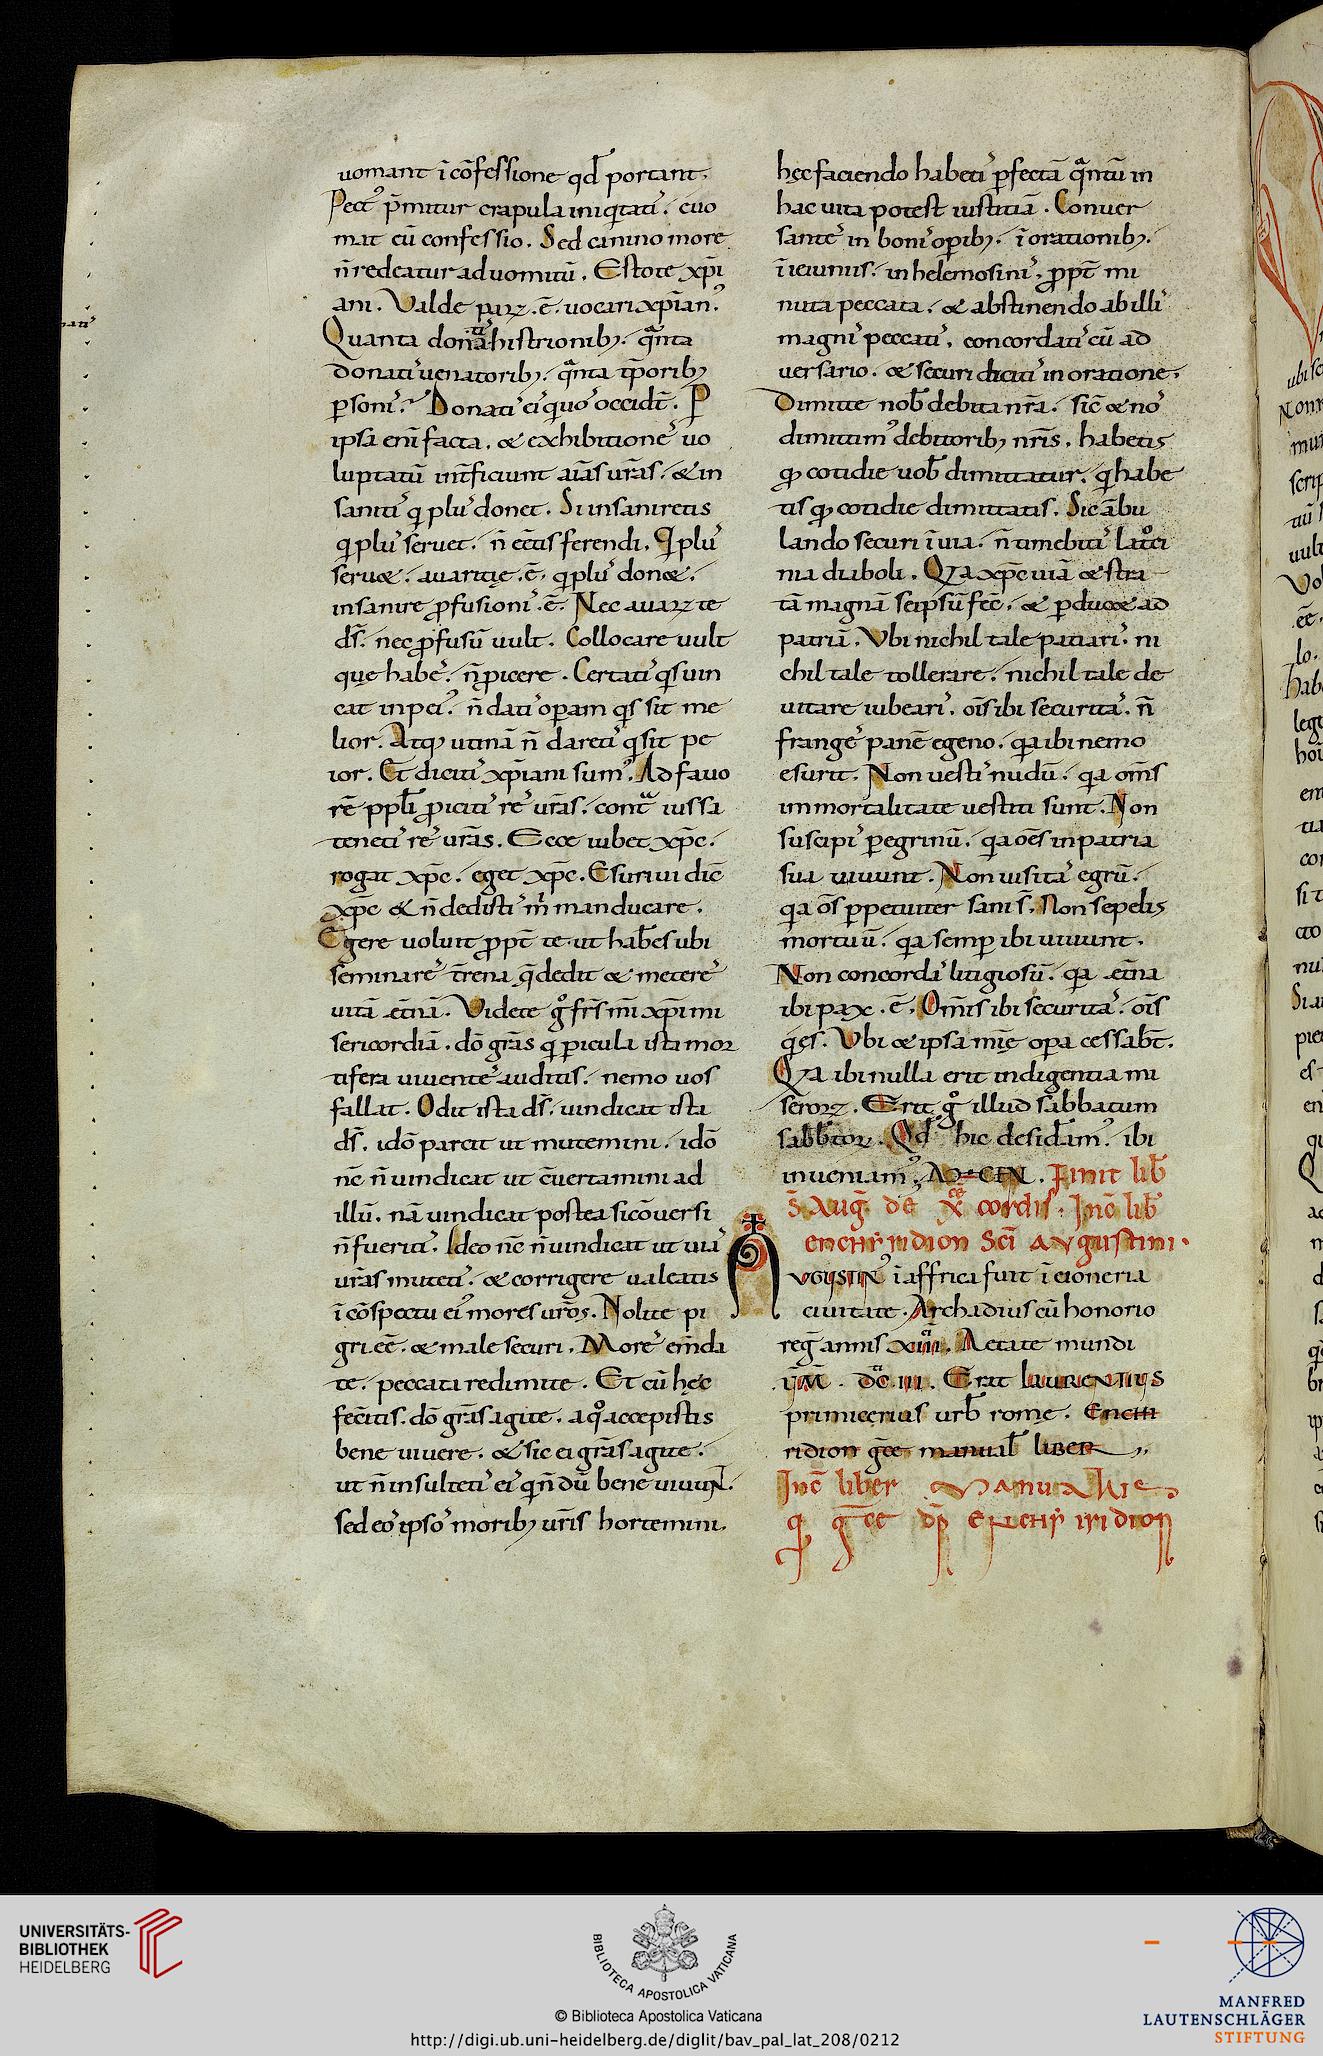 uomant ī cōfessione qd̄ portant.
Pect᷒ p̄mitur crapula iniq̇tati᷒. euo
mat cū confessio. Sed canino more
n̄ redeatur ad uomitū. Estote xp̄i
ani. Valde paꝝ .ē. uocari xp̄ian᷒.
Quanta donati᷒ histrionibꝫ. qᷓnta
donati᷒ uenatoribꝫ. qᷓnta tp̄oribꝫ
ꝑsoni᷒. Donati᷒ ei᷒ quo᷒ occidt̄. P
ipsa eni᷒ facta. & exhibitione᷒ uo
luptatū int̄ficiunt aīas urās. & in
saniti᷒ q̇ plu᷒ donet. Si insaniretis
q̇ plu᷒ seruet. n̄ ēetis ferendi. Q̇ plu᷒
seru&. auaritię .ē. q̇ plu᷒ don&.
insanire ꝓfusioni᷒ .ē. Nec auaꝝ te
dS̄. nec ꝓfusū uult. Collocare uult
que habe᷒. n̄ ꝓicere. Certati᷒ q̇s uin
cat in pei᷒. n̄ dati᷒ oꝑam q̇s sit me
lior. Atqꝫ utinā n̄ dareti᷒ q̇ sit pe
ior. Et dicitis xp̄iani sum᷒. Ad fauo
rē ppli ꝓiciti᷒ re᷒ urās. contᷓ iussa
teneti᷒ re᷒ urās. Ecce iubet xp̄c.
rogat xp̄c. eget xp̄c. Esuriui dic̄
xp̄c & n̄ dedisti᷒ m̄ manducare.
Egere uoluit ꝓpt̄ te. ut hab̄es ubi
seminare᷒ t̄rena q̨ dedit & metere᷒
uitā et̄nā. Videte g° frs̄ mī xp̄i mi
sericordiā. dō grās q̇ ꝑicula ista moꝛ
tifera uiuente᷒ auditis. nemo uos
fallat. Odit ista dS̄. uindicat ista
dS̄. idō parcit ut mutemini. idō
nē n̄ uindicat ut c̄uertamini ad
illū. nā uindicat postea si cōuersi
n̄ fueriti᷒. Ideo nē n̄ uindicat ut uia᷒
urās muteti᷒. & corrigere ualeatis
ī cōspectu ei᷒ mores urōs. Nolite pi
gri. eē. & male securi. More᷒ em̄da
te. peccata redimite. Et cū hęc
fecitis. dō grās agite. a q° accepistis
bene uiuere. & sic ei grās agite.
ut n̄ insulteti᷒ ei᷒ q̇ n̄ dū bene uiuuN̄T.
sed eo᷒ ipso᷒ moribꝫ uris̄ hortemini.
hęc faciendo habeti᷒ ꝑfectā qᷓntū in
hac uita potest iustitiā. Conuer
sante᷒ in boni᷒ oꝑibꝫ. ī orationibꝫ.
ī ieiuniis. in helemosini᷒. ꝓpt̄ mi
nuta peccata. & abstinendo ab illi᷒
magni᷒ peccati᷒. concordati᷒ cū ad
uersario. & securi diciti᷒ in oratione.
Dimitte nob̄ debita nrā. sic̄ & no᷒
dimittim᷒ debitoribꝫ nris̄. habetis
qꝫ cotidie uob̄ dimittatur. q̇ habe
tis qꝫ cotidie dimittatis. Sic ābu
lando securi ī uia. n̄ timebiti᷒ latoci
nia diaboli. Q̇a xp̄c uiā & stra
tā magnā seipsū fec̄. & ꝑduc& ad
patriā. Vbi nichil tale patiari᷒. ni
chil tale tollerare. nichil tale de
uitare iubeari᷒. ois̄ ibi securita᷒. n̄
frange᷒ panē egeno. q̇a ibi nemo
esurit. Non uesti᷒ nudū. q̇a om̄s
immortalitate uestiti sunt. Non
suscipi᷒ ꝑegrinū. q̇a oēs in patria
sua uiuunt. Non uisita᷒ egrū.
q̇a ōs ꝑpetuiter sani s̄. Non sepelis
mortuū. q̇a semꝑ ibi uiuunt.
Non concorda᷒ litigiosū. q̇a et̄na
ibi pax .ē. Om̄is ibi securita᷒. ois̄
q̇es. Vbi & ipsa mię oꝑa cessab̄t.
Q̇a ibi nulla erit indigentia mi
seroꝝ. Erit g° illud sabbatum
sabb̄toꝝ. Qd̄ hic desidam̄᷒. ibi
inueniam᷒. AMEN. Finit lib̄
S̄ Auḡ de x cordis. Inc̄ lib̄
enchiridion Sc̄i Augustini.
AVGUSTIN᷒ ī affrica fuit ī cioneria
ciuitate. Archadius cū honorio
reg̃ annis xiiii. Aetate mundi
ȳM̄. dc̄.iii. Erat LAURENTIUS
primicerius urb̄ rome. Enchi
ridion gc̄e manual̄ liber
Inc̄ liber Manualis
qꝫ gc̄e dr̄ Enchiridion